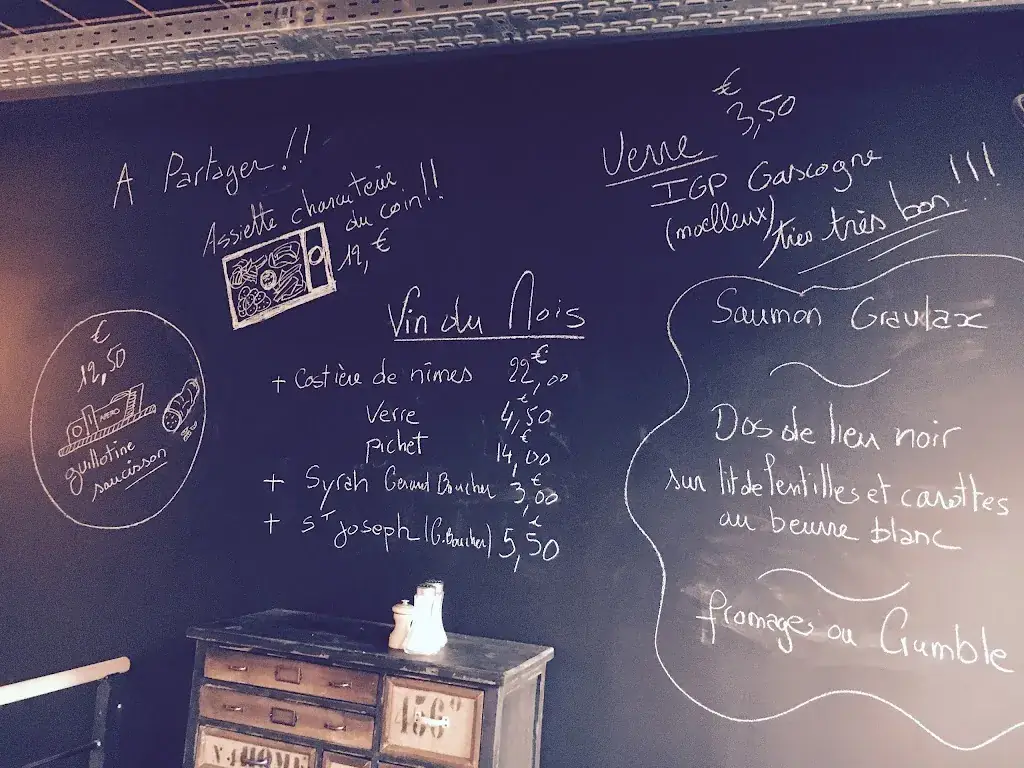 A Partager !!
Assiette charcuterie
du coin !!
12, €
€
12,50
NERO
guillotine
saucisson
Vin du Mois
+ Costière de nîmes 22,00 €
Verre 4,50 €
pichet 14,00 €
+ Syrah Gerard Boucher 3,00 €
+ St Joseph (G. Boucher) 5,50 €
€
3,50
Verre
IGP Gascogne
(moelleux)
très très bon !!!
Saumon Gravlax
Dos de lieu noir
sur lit de lentilles et carottes
au beurre blanc
fromages ou Crumble
456